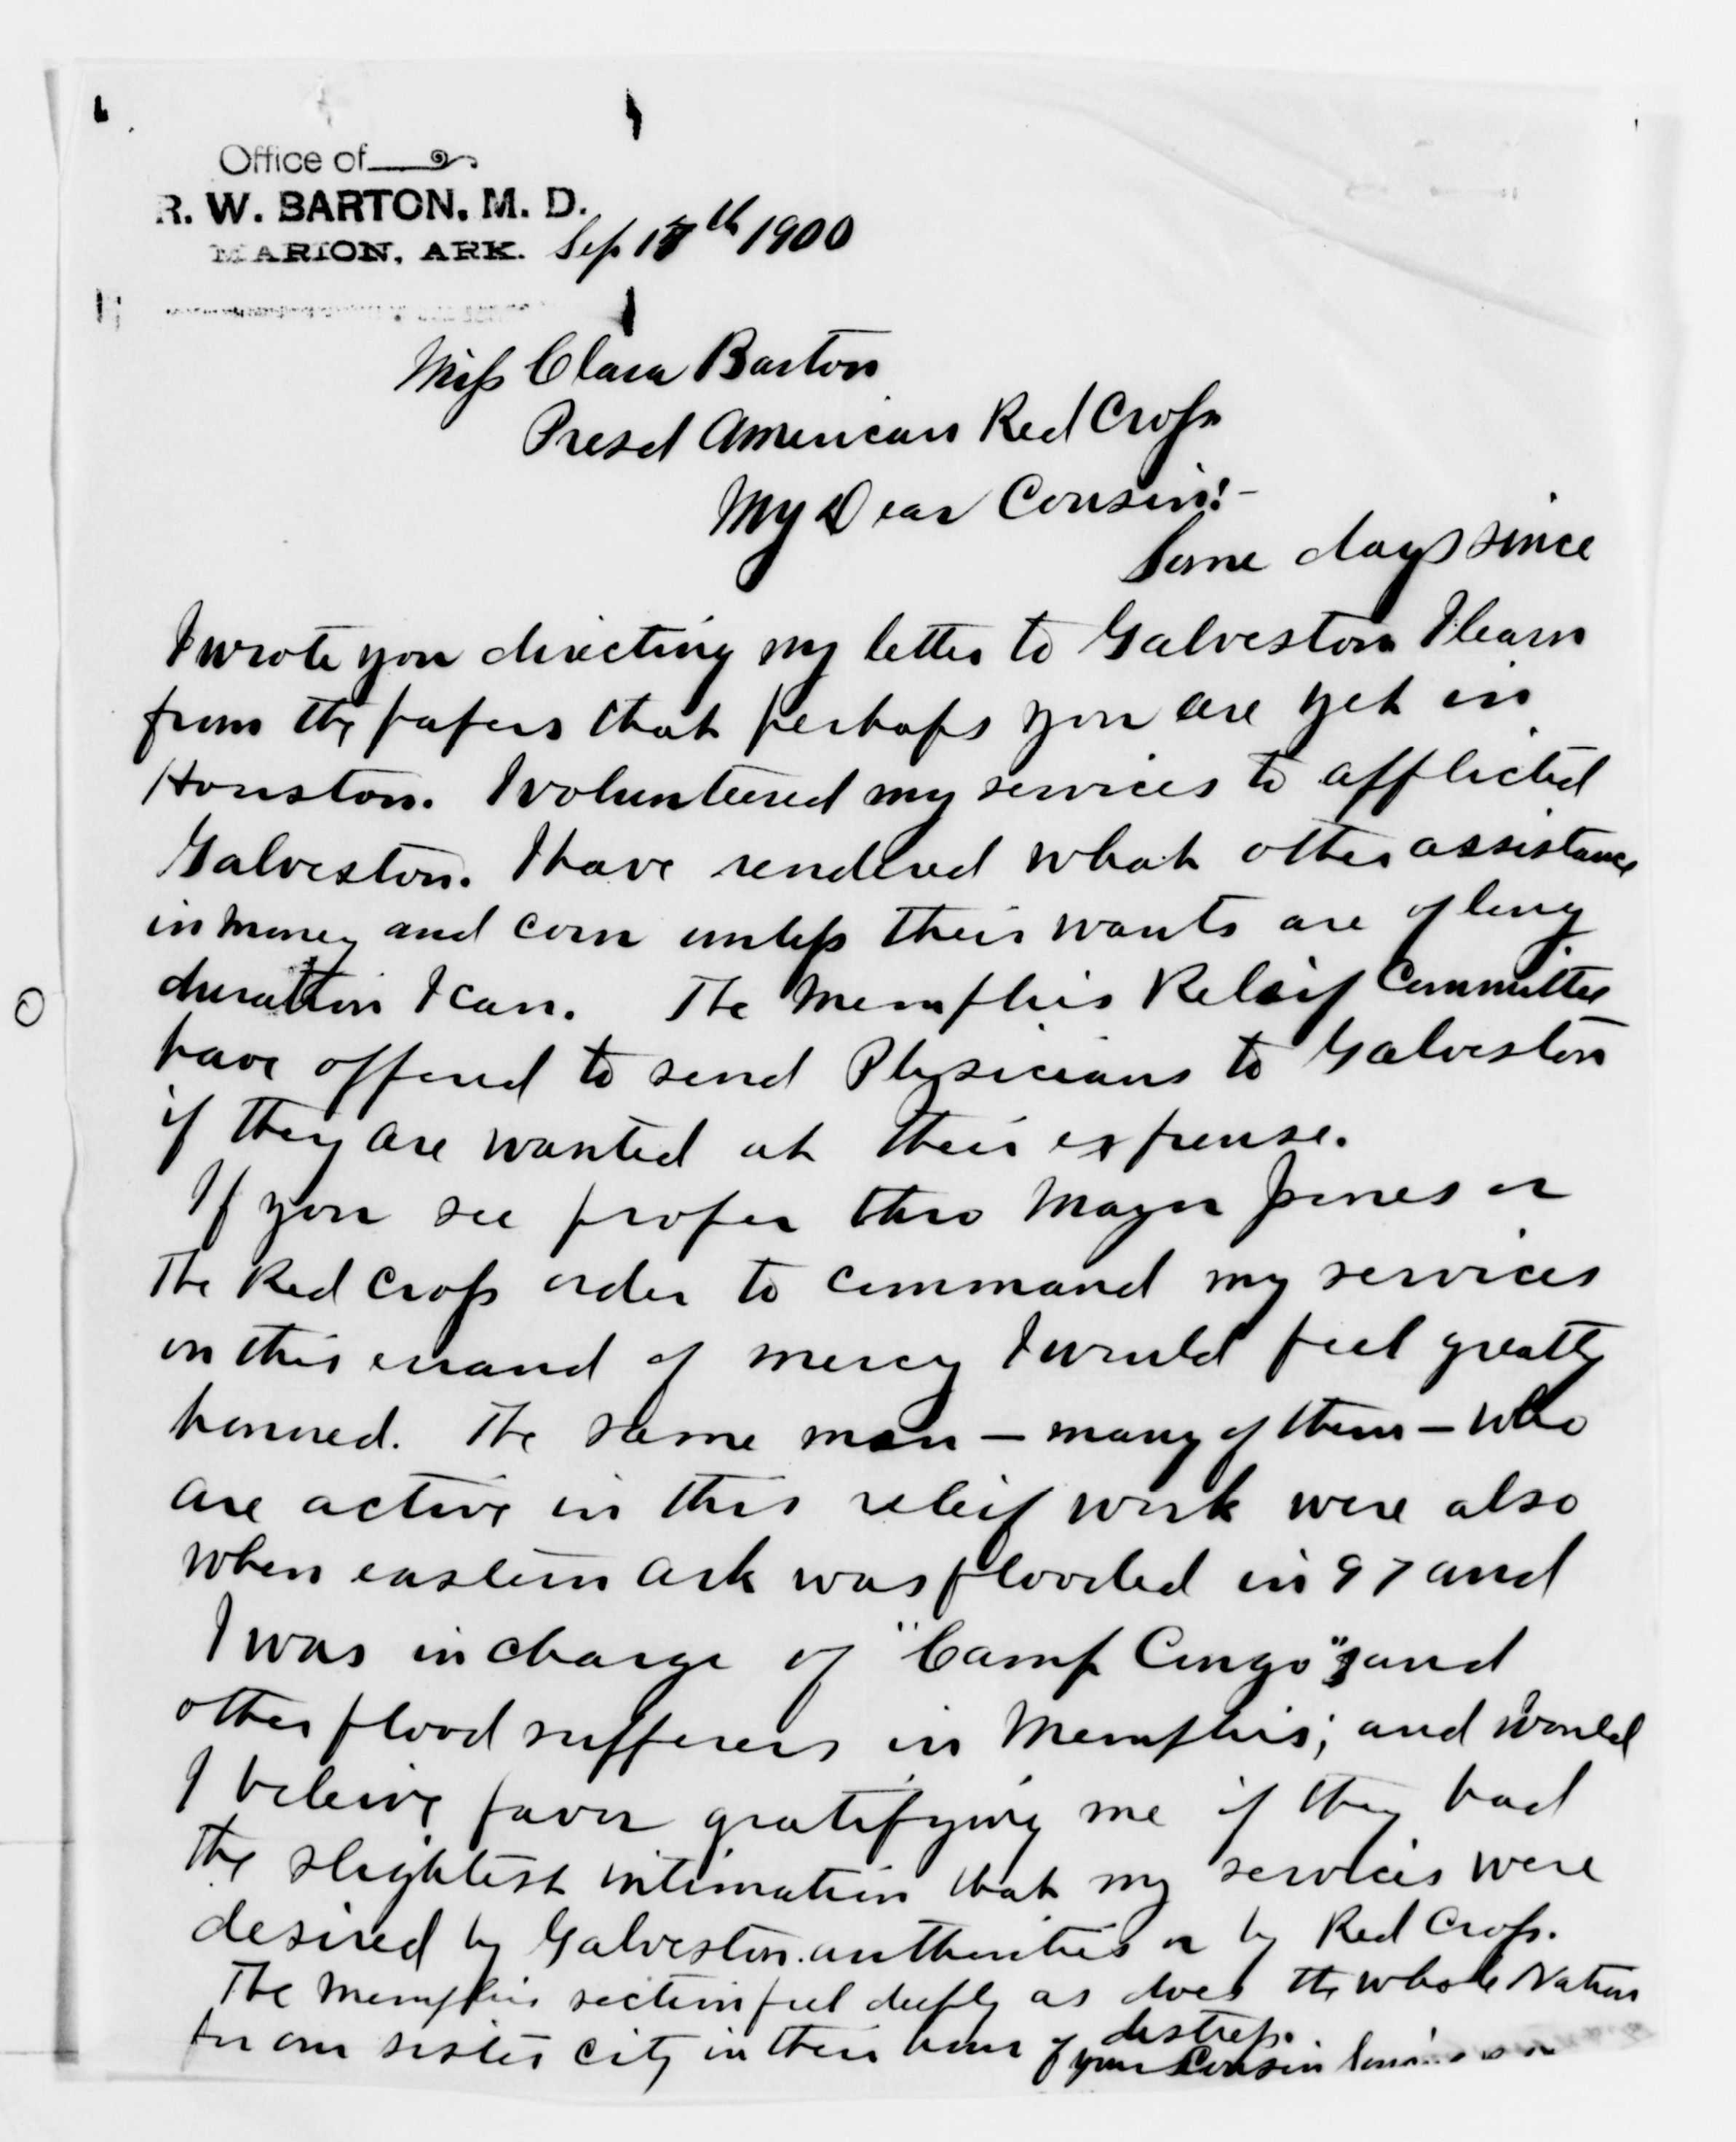 Office of
R. W. BARTON, M. D.
MARION, ARK. Sep 17th 1900
Miss Clara Barton
Presd American Red Cross
My Dear Cousin:-
Some days since
I wrote you directing my letter to Galveston I learn
from the papers that perhaps you are yet in
Houston. I volunteered my services to afflicted
Galveston. I have rendered what other assistance
in money and corn unless their wants are of long
duration I can. The Memphis Releif Committee
have offered to send Physicians to Galveston
if they are wanted at their expense.
If you see proper thro Mayor Jones or
The Red Cross order to command my services
on this errand of mercy I would feel greatly
honored. The same men – many of them – who
are active in this releif work were also
when eastern Ark was flooded in 97 and
I was in charge of "Camp Congo" and
other flood sufferers in Memphis; and would
I beleive favor gratifying me if they had
the slightest intimation that my services were
desired by Galveston authorities or by Red Cross.
The Memphis section feel deeply as does the whole Nation
for our sister city in their hour of distress.
your Cousin